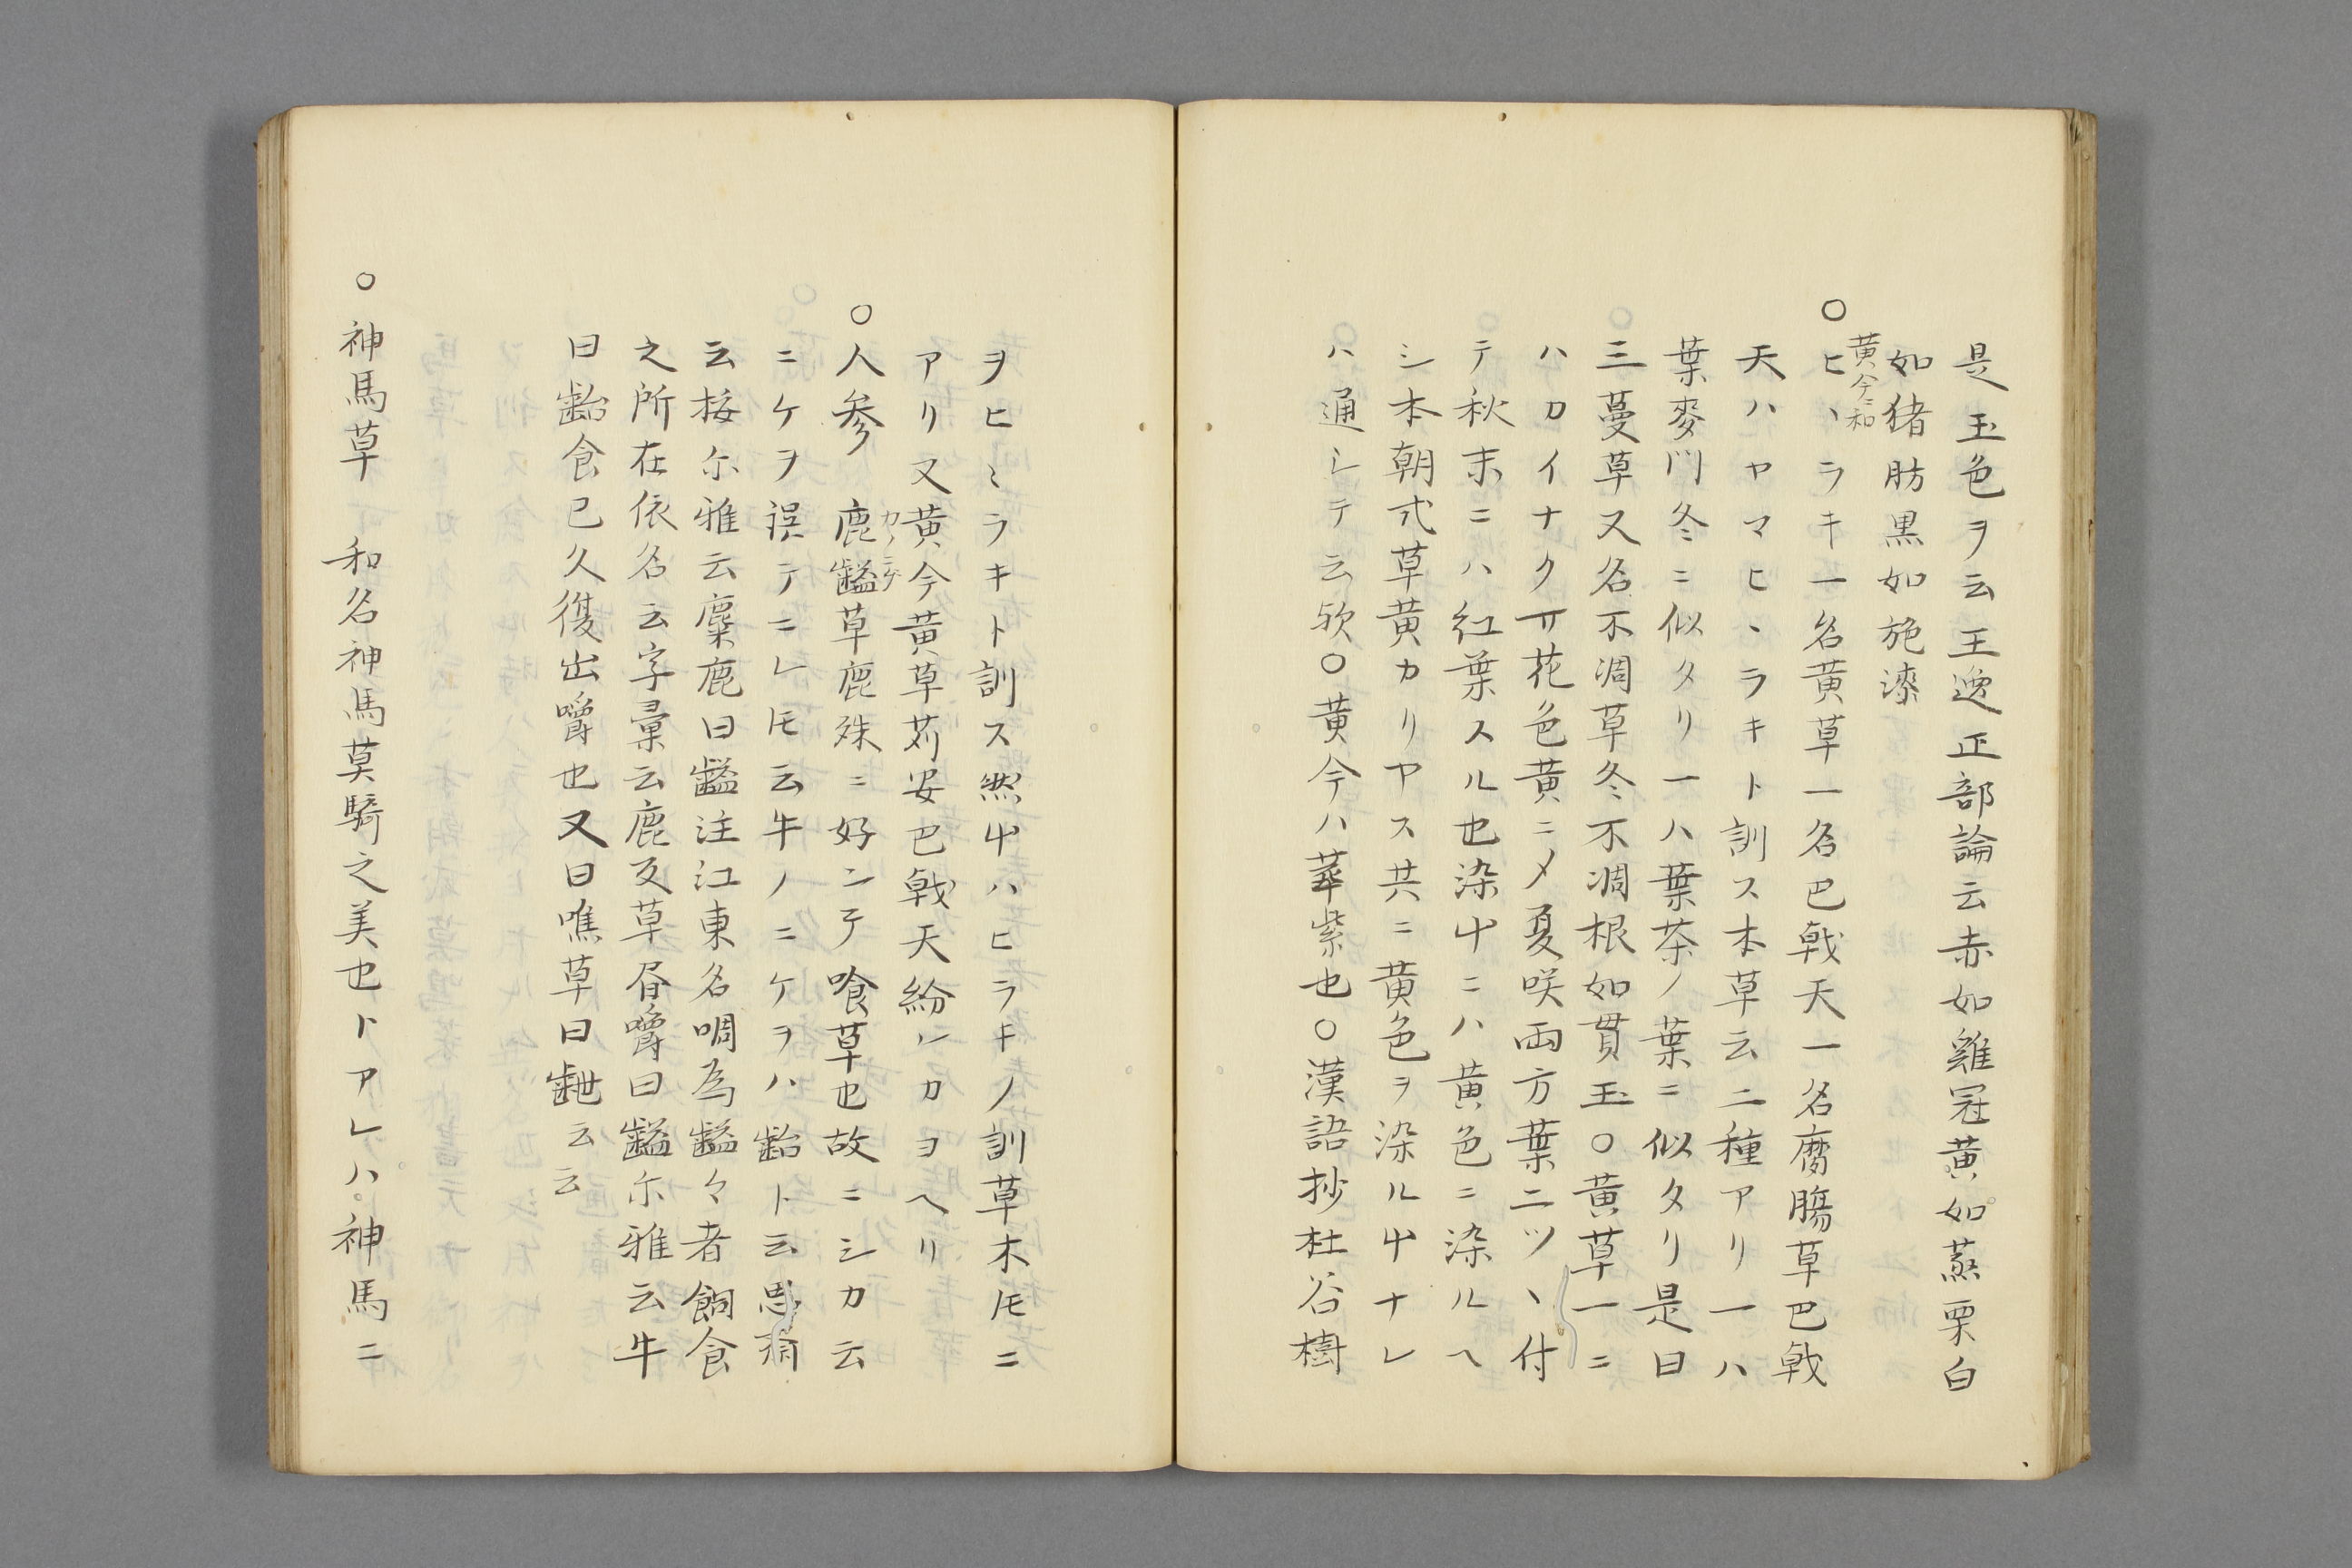 是玉色ヲ云王逸正部論云赤如雞冠黄如蒸栗白
如猪肪黒如施漆
黄今ニ和
○ヒヽラキ一名黄草一名巴戟天一名磨膓草巴戟
天ハヤマヒヽラキト訓ス本草云二種アリ一ハ
葉麥門冬ニ似タリ一ハ葉茶ノ葉ニ似タリ是曰
三蔓草又名不凋草冬不凋根如貫玉○黄草一ニ
ハカイナクサ花色黄ニ〆夏咲両方葉二ツヽ付
テ秋末ニハ紅葉スル也染ヿニハ黄色ニ染ルヘ
シ本朝弐草黄カリヤス共ニ黄色ヲ染ルヿナレ
ハ通シテ云欤○黄今ハ華紫也○漢語抄杜谷樹
ヲヒヽラキト訓ス然ヿハヒラキノ訓草木𪜈ニ
アリ又黄今黄草苅安巴戟天紛シカヨヘリ
○人参 鹿齸草鹿殊ニ好ンテ喰草也故ニシカ云
カノニゲ
ニケヲ誤テニレ𪜈云牛ノニケヲハ齝ト云
云按尓雅云麋鹿曰齸注江東名啁為齸々者餇食
之所在依名云字彙云鹿反草昼嚼曰齸尓雅云牛
曰齝食已久復出嚼也又曰噍草曰齛云云
○神馬草 和名神馬莫騎之美也トアレハ神馬ニ